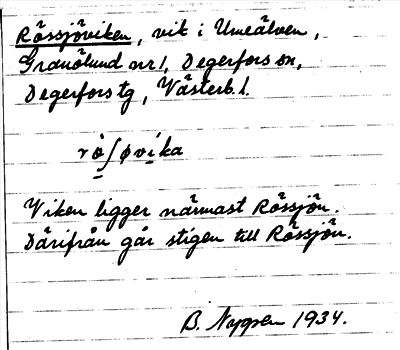 Rössjöviken, vik i Umeälven,
Granölund nr 1, Degerfors sn,
Degerfors tg, Västerb. l.
rö̀ʃøvika
Viken ligger närmast Rössjön.
Därifrån går stigen till Rössjön.
B. Nygren 1934.